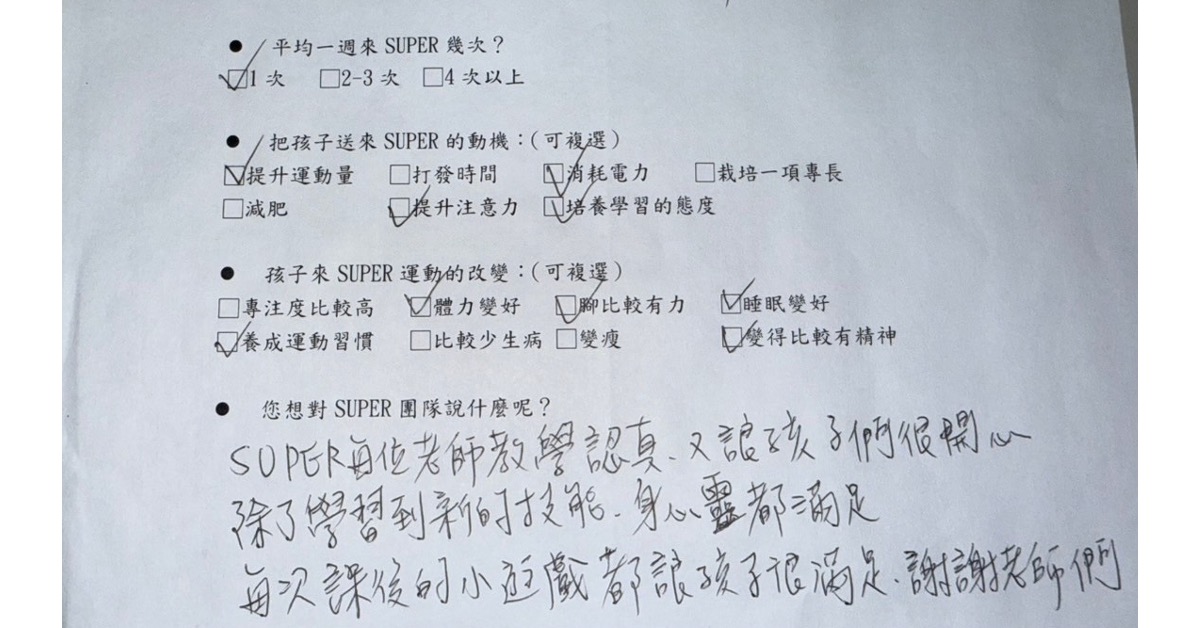 ● 平均一週來 SUPER 幾次？
☑1 次 □2-3 次 □4 次以上
● 把孩子送來 SUPER 的動機：(可複選)
☑提升運動量 □打發時間 ☑消耗電力 □栽培一項專長
□減肥 ☑提升注意力 ☑培養學習的態度
● 孩子來 SUPER 運動的改變：(可複選)
□專注度比較高 ☑體力變好 ☑腳比較有力 ☑睡眠變好
☑養成運動習慣 □比較少生病 □變瘦 ☑變得比較有精神
● 您想對 SUPER 團隊說什麼呢？
SUPER每位老師教學認真、又讓孩子們很開心
除了學習到新的技能、身心靈都滿足
每次課後的小遊戲都讓孩子很滿足、謝謝老師們